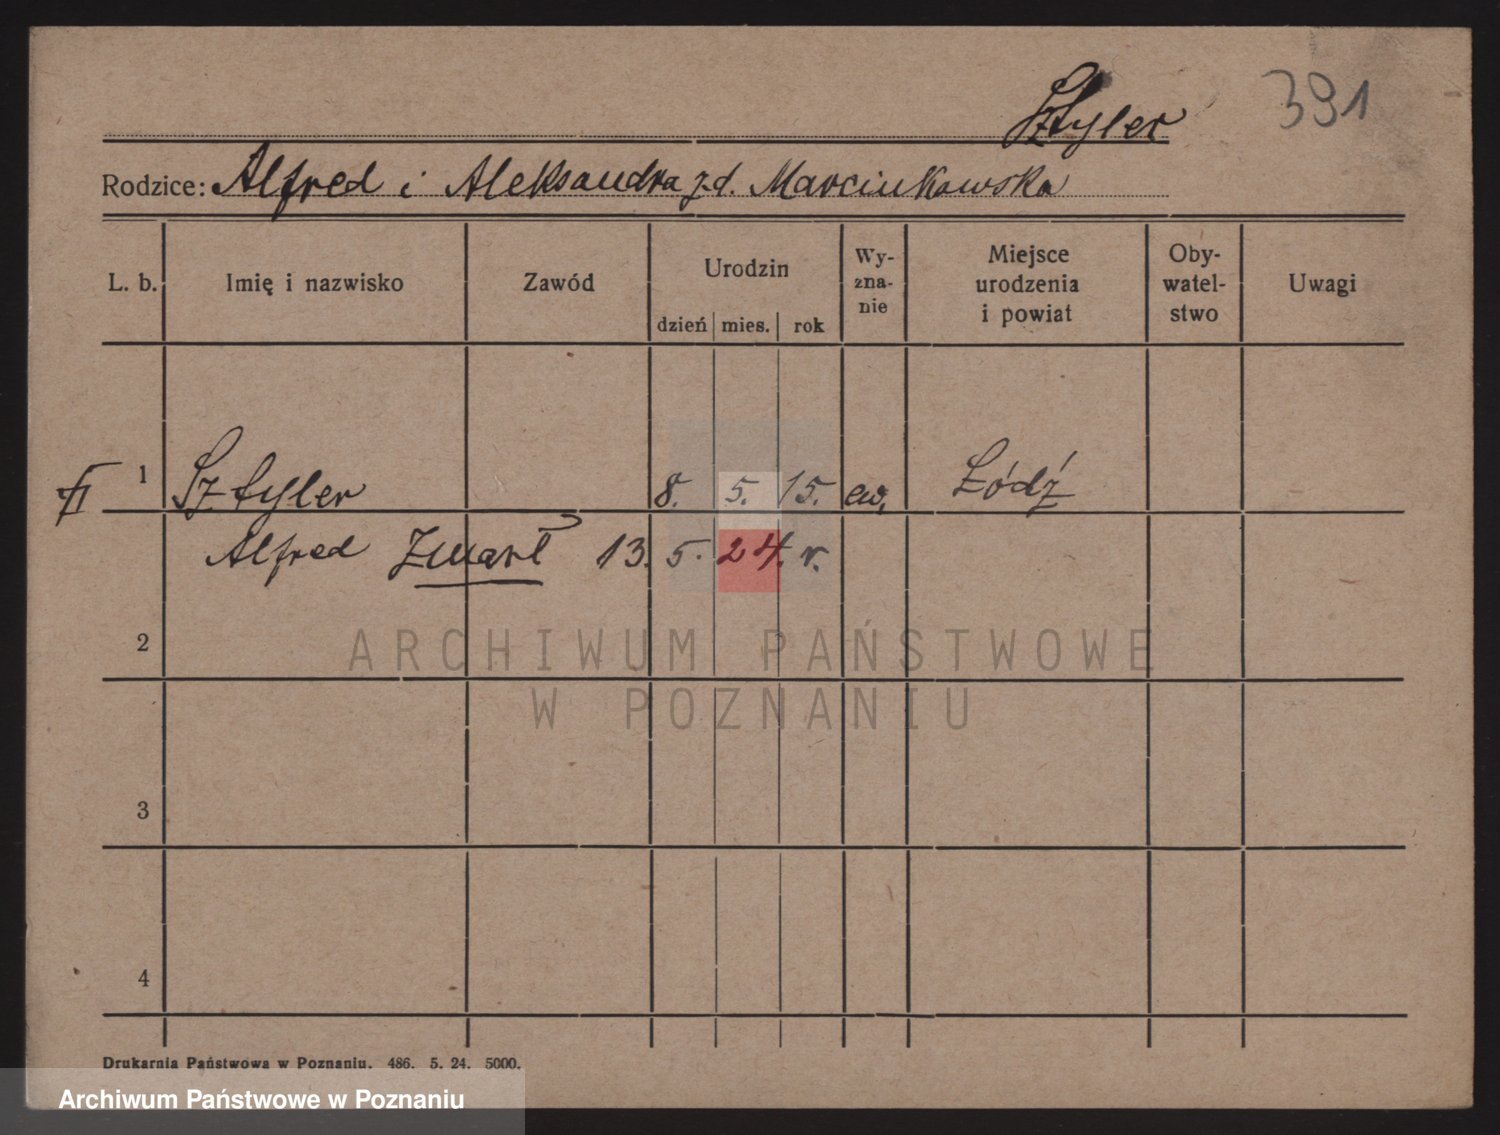 Sztyler
391
Rodzice: Alfred i Aleksandra z d. Marcinkowska
L. b. Imię i nazwisko Zawód Urodzin dzień mies. rok Wy-zna-nie Miejsce urodzenia i powiat Oby-watel-stwo Uwagi
1 Sztyler 8. 5. 15. ew. Łódź
Alfred Zmarł 13. 5. 24. r.
2
ARCHIWUM PAŃSTWOWE
W POZNANIU
3
4
Drukarnia Państwowa w Poznaniu. 486. 5. 24. 5000.
Archiwum Państwowe w Poznaniu